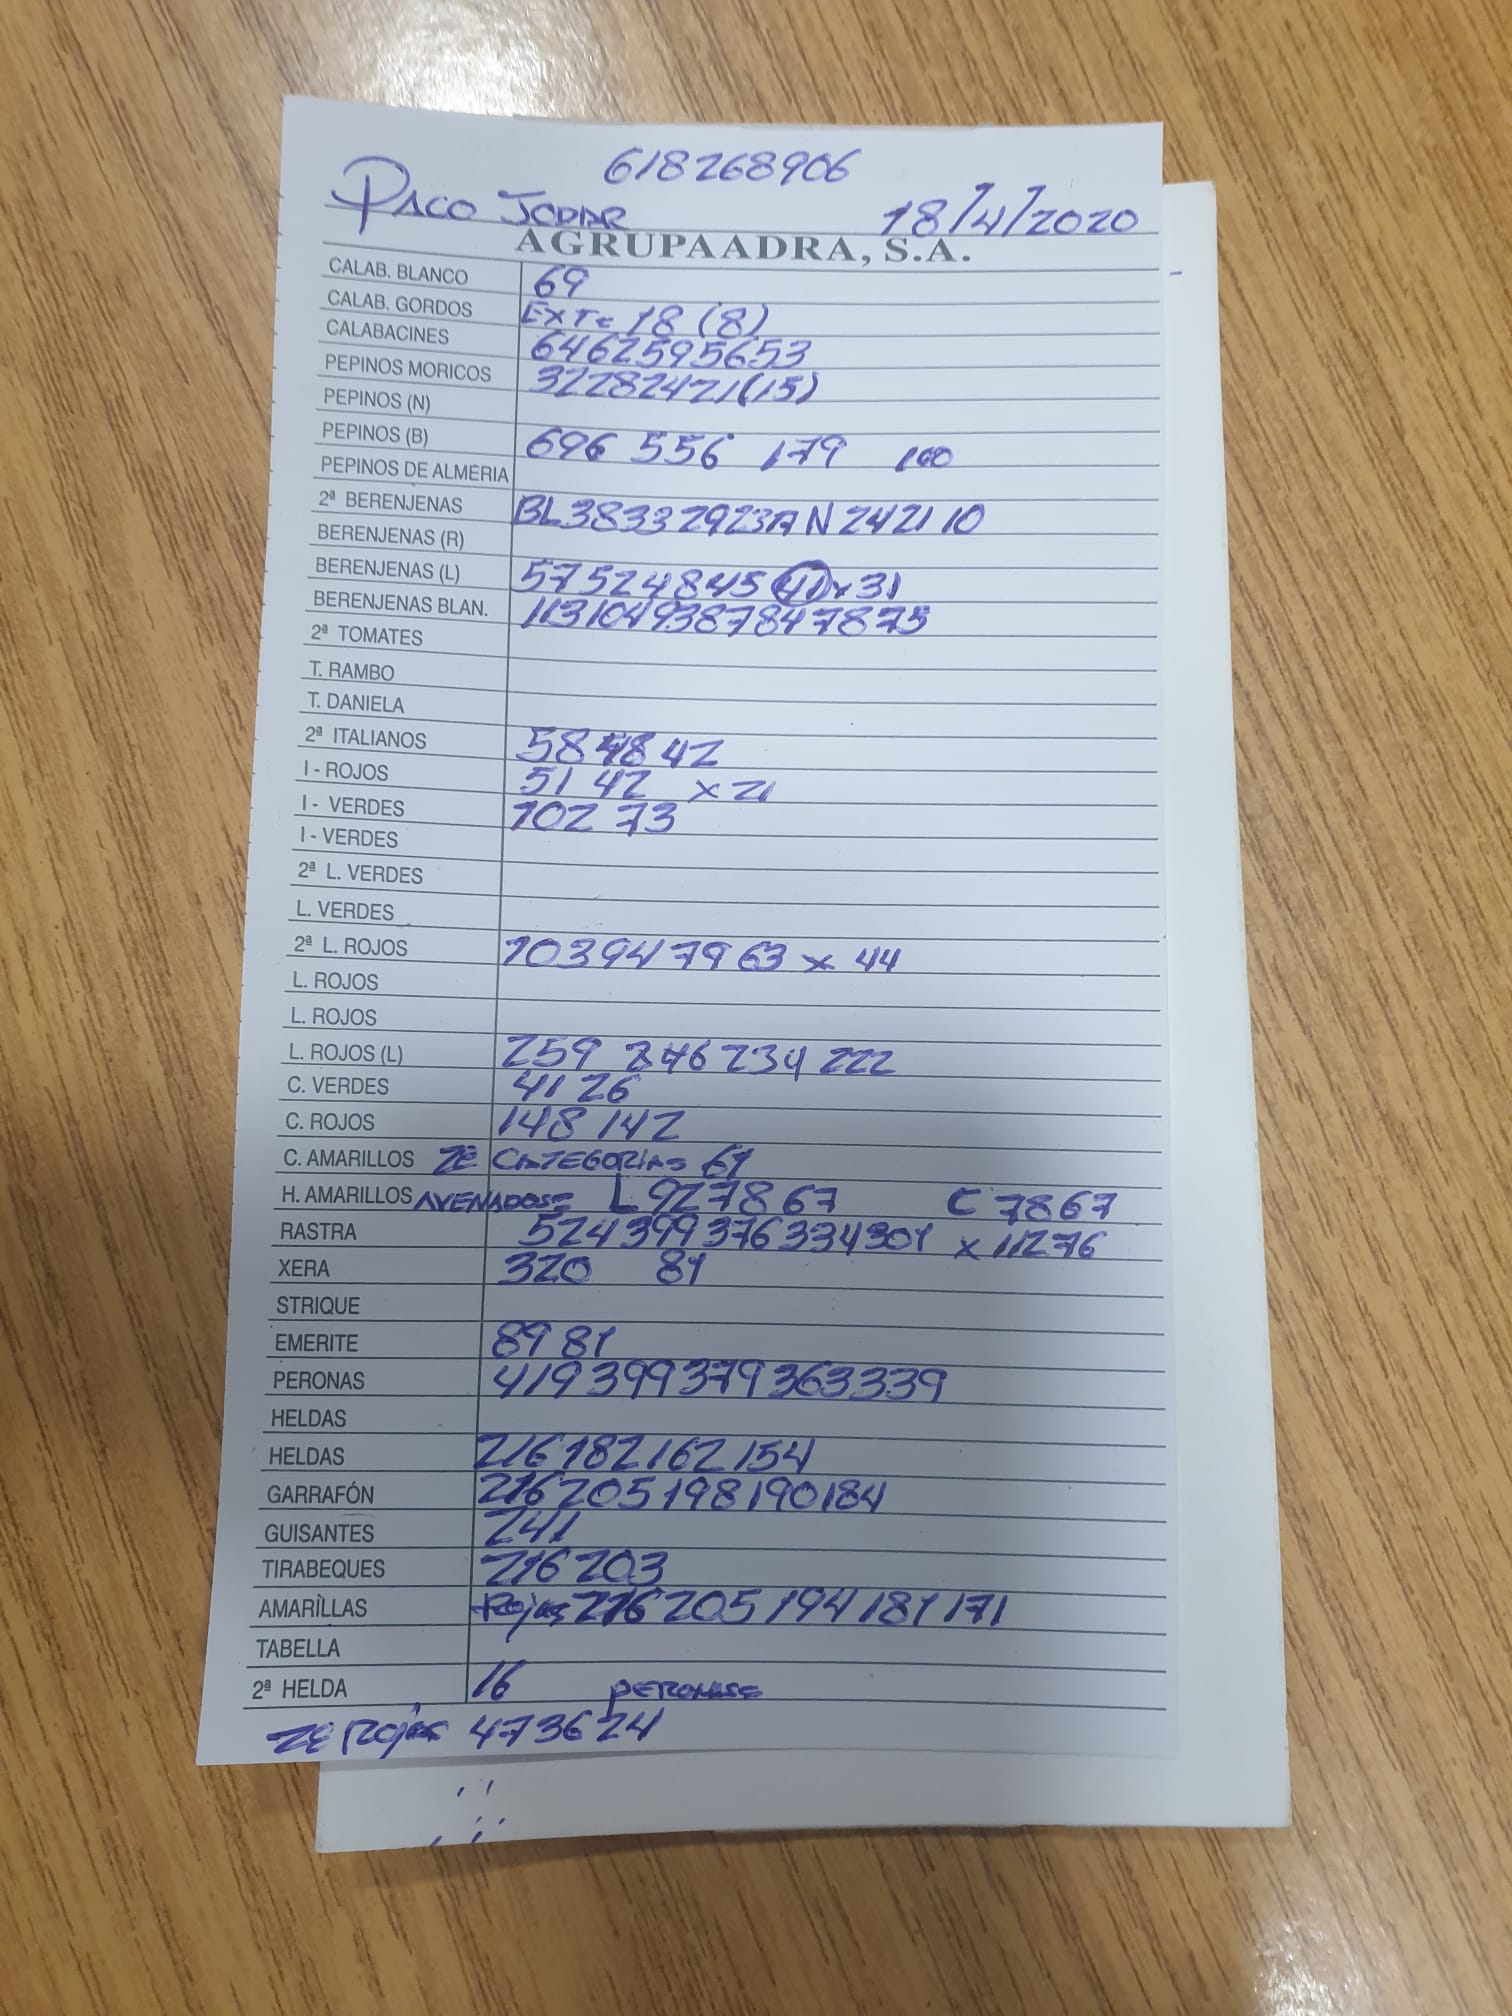 618268906
PACO JODAR 18/4/2020
AGRUPAADRA, S.A.
CALAB. BLANCO 69
CALAB. GORDOS EXTE 18 (8)
CALABACINES 6462595653
PEPINOS MORICOS 32282421(15)
PEPINOS (N)
PEPINOS (B) 696 556 179 100
PEPINOS DE ALMERIA
2ª BERENJENAS BL38332923AN242110
BERENJENAS (R)
BERENJENAS (L) 57524845 41 x 31
BERENJENAS BLAN. 113104938784 7875
2ª TOMATES
T. RAMBO
T. DANIELA
2ª ITALIANOS 58 48 42
I - ROJOS 51 42 x 21
I - VERDES 102 73
I - VERDES
2ª L. VERDES
L. VERDES
2ª L. ROJOS 10394 79 63 x 44
L. ROJOS
L. ROJOS
L. ROJOS (L) 259 246 234 222
C. VERDES 41 26
C. ROJOS 148 142
C. AMARILLOS 2ª CATEGORIAS 61
H. AMARILLOS AVENADOSE L 927867 C 7867
RASTRA 524399376334301 x 11276
XERA 320 81
STRIQUE
EMERITE 89 81
PERONAS 419399379363339
HELDAS
HELDAS 216182162154
GARRAFÓN 216205198190184
GUISANTES 241
TIRABEQUES 216203
AMARÌLLAS Rojas 216205194181171
TABELLA
2ª HELDA 16 PERONASE
2ª Rojas 473624